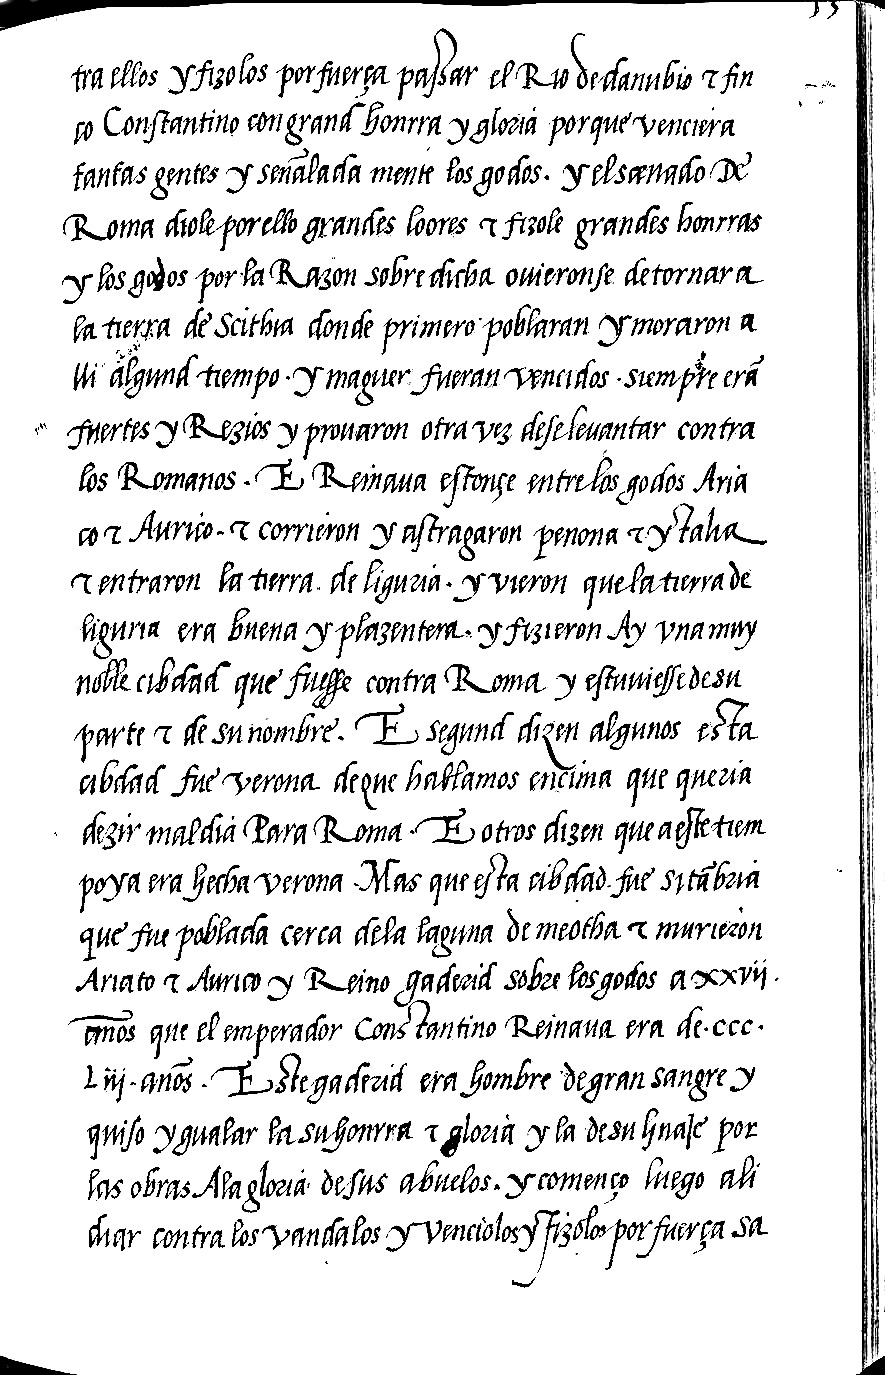 15
tra ellos y fizolos por fuerça passar el Rio de danubio τ fin
co Constantino con grand honrra y gloria porque venciera
tantas gentes y señalada mente los godos. y el sænado De
Roma diole por ello grandes loores τ fizole grandes honrras
y los godos por la Razon sobre dicha ouieronse de tornar a
la tierra de Scithia donde primero poblaran y moraron a
lli algund tiempo. y maguer fueran vencidos. siempre erã
fuertes y Rezios y prouaron otra vez de se leuantar contra
los Romanos. E Reinaua estonçe entre los godos Aria
co τ Aurico. τ corrieron y astragaron penona τ ytalia
τ entraron la tierra de liguria. y vieron que la tierra de
liguria era buena y plazentera. y fizieron Ay vna muy
noble cibdad que fuesse contra Roma y estuuiesse de su
parte τ de su nombre. E segund dizen algunos esta
cibdad fue verona de que hablamos encima que queria
dezir mal dia Para Roma. E otros dizen que a este tiem
po ya era hecha verona. Mas que esta cibdad fue sitãbria
que fue poblada cerca de la laguna de meotha τ murieron
Ariato τ Aurico y Reino gaderid sobre los godos a xxvii.
años que el emperador Constantino Reinaua era de. ccc.
Liij. años. Este gaderid era hombre de gran sangre y
quiso ygualar la su honrra τ gloria y la de su linaje por
las obras A la gloria de sus abuelos. y començo luego a li
diar contra los vandalos y venciolos y fizolos por fuerça sa